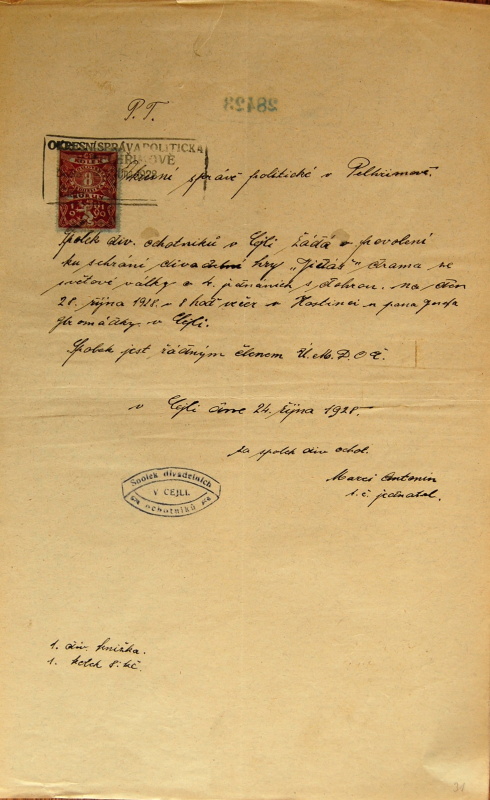 28423
P.T.
OKRESNÍ SPRÁVA POLITICKÁ
Okresní správě politické v Pelhřimově.
Spolek div. ochotníků v Cejli žádá o povolení
ku sehrání divadelní hry "Jidáš" drama ze
světové války o 4. jednáních s dohrou. na den
28. října 1928. v 8 hod večer v Hostinci u pana Josefa
v Cejli.
Spolek jest, řádným členem Ú.M.D.O.Č.
v Cejli dne 24. října 1928.
za spolek div. ochot.
Marci Antonín
t.č. jednatel.
Spolek divadelních
V CEJLI.
ochotníků
1. div. knížka.
1. kolek 8. kč.
31